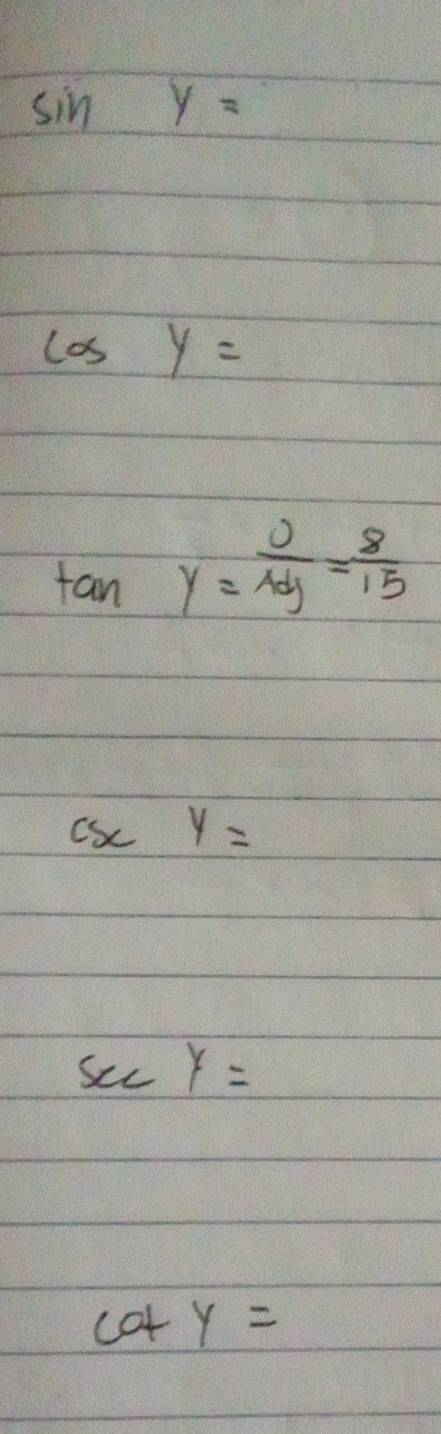 sin Y =
cos Y =
tan Y = O/Adj = 8/15
csc Y =
sec Y =
cot Y =